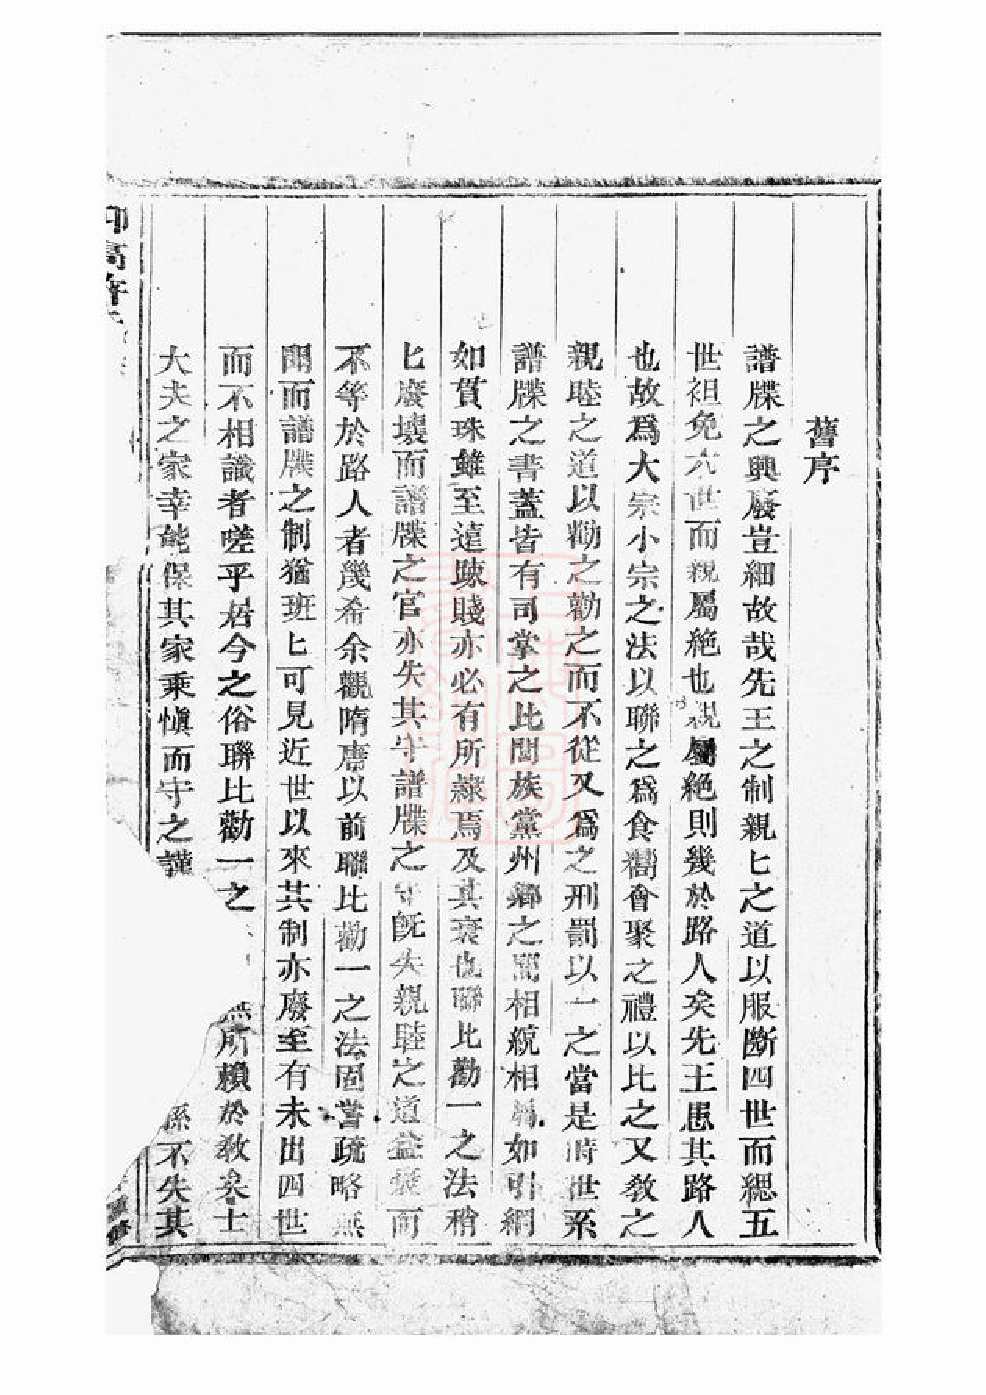 舊序
譜牒之興廢豈細故哉先王之制親匕之道以服斷四世而緦五
世袒免六世而親屬絶也親屬絶則幾於路人矣先王患其路人
也故爲大宗小宗之法以聯之爲食觴會聚之禮以比之又教之
親睦之道以勸之勸之而不從又爲之刑罰以一之當是時世系
譜牒之書蓋皆有司掌之比閭族黨州鄉之間相統相屬如引網
如貫珠雖至遠踈賤亦必有所隸焉及其衰也聯比勸一之法稍
匕廢壞而譜牒之官亦失其守譜牒之守旣失親睦之道益衰而
不等於路人者幾希余觀隋唐以前聯比勸一之法固嘗疏略無
聞而譜牒之制猶班匕可見近世以來其制亦廢至有未出四世
而不相識者嗟乎居今之俗聯比勸一之 無所賴於教矣士
大夫之家幸能保其家乘愼而守之謹 孫不失其
仰高許氏